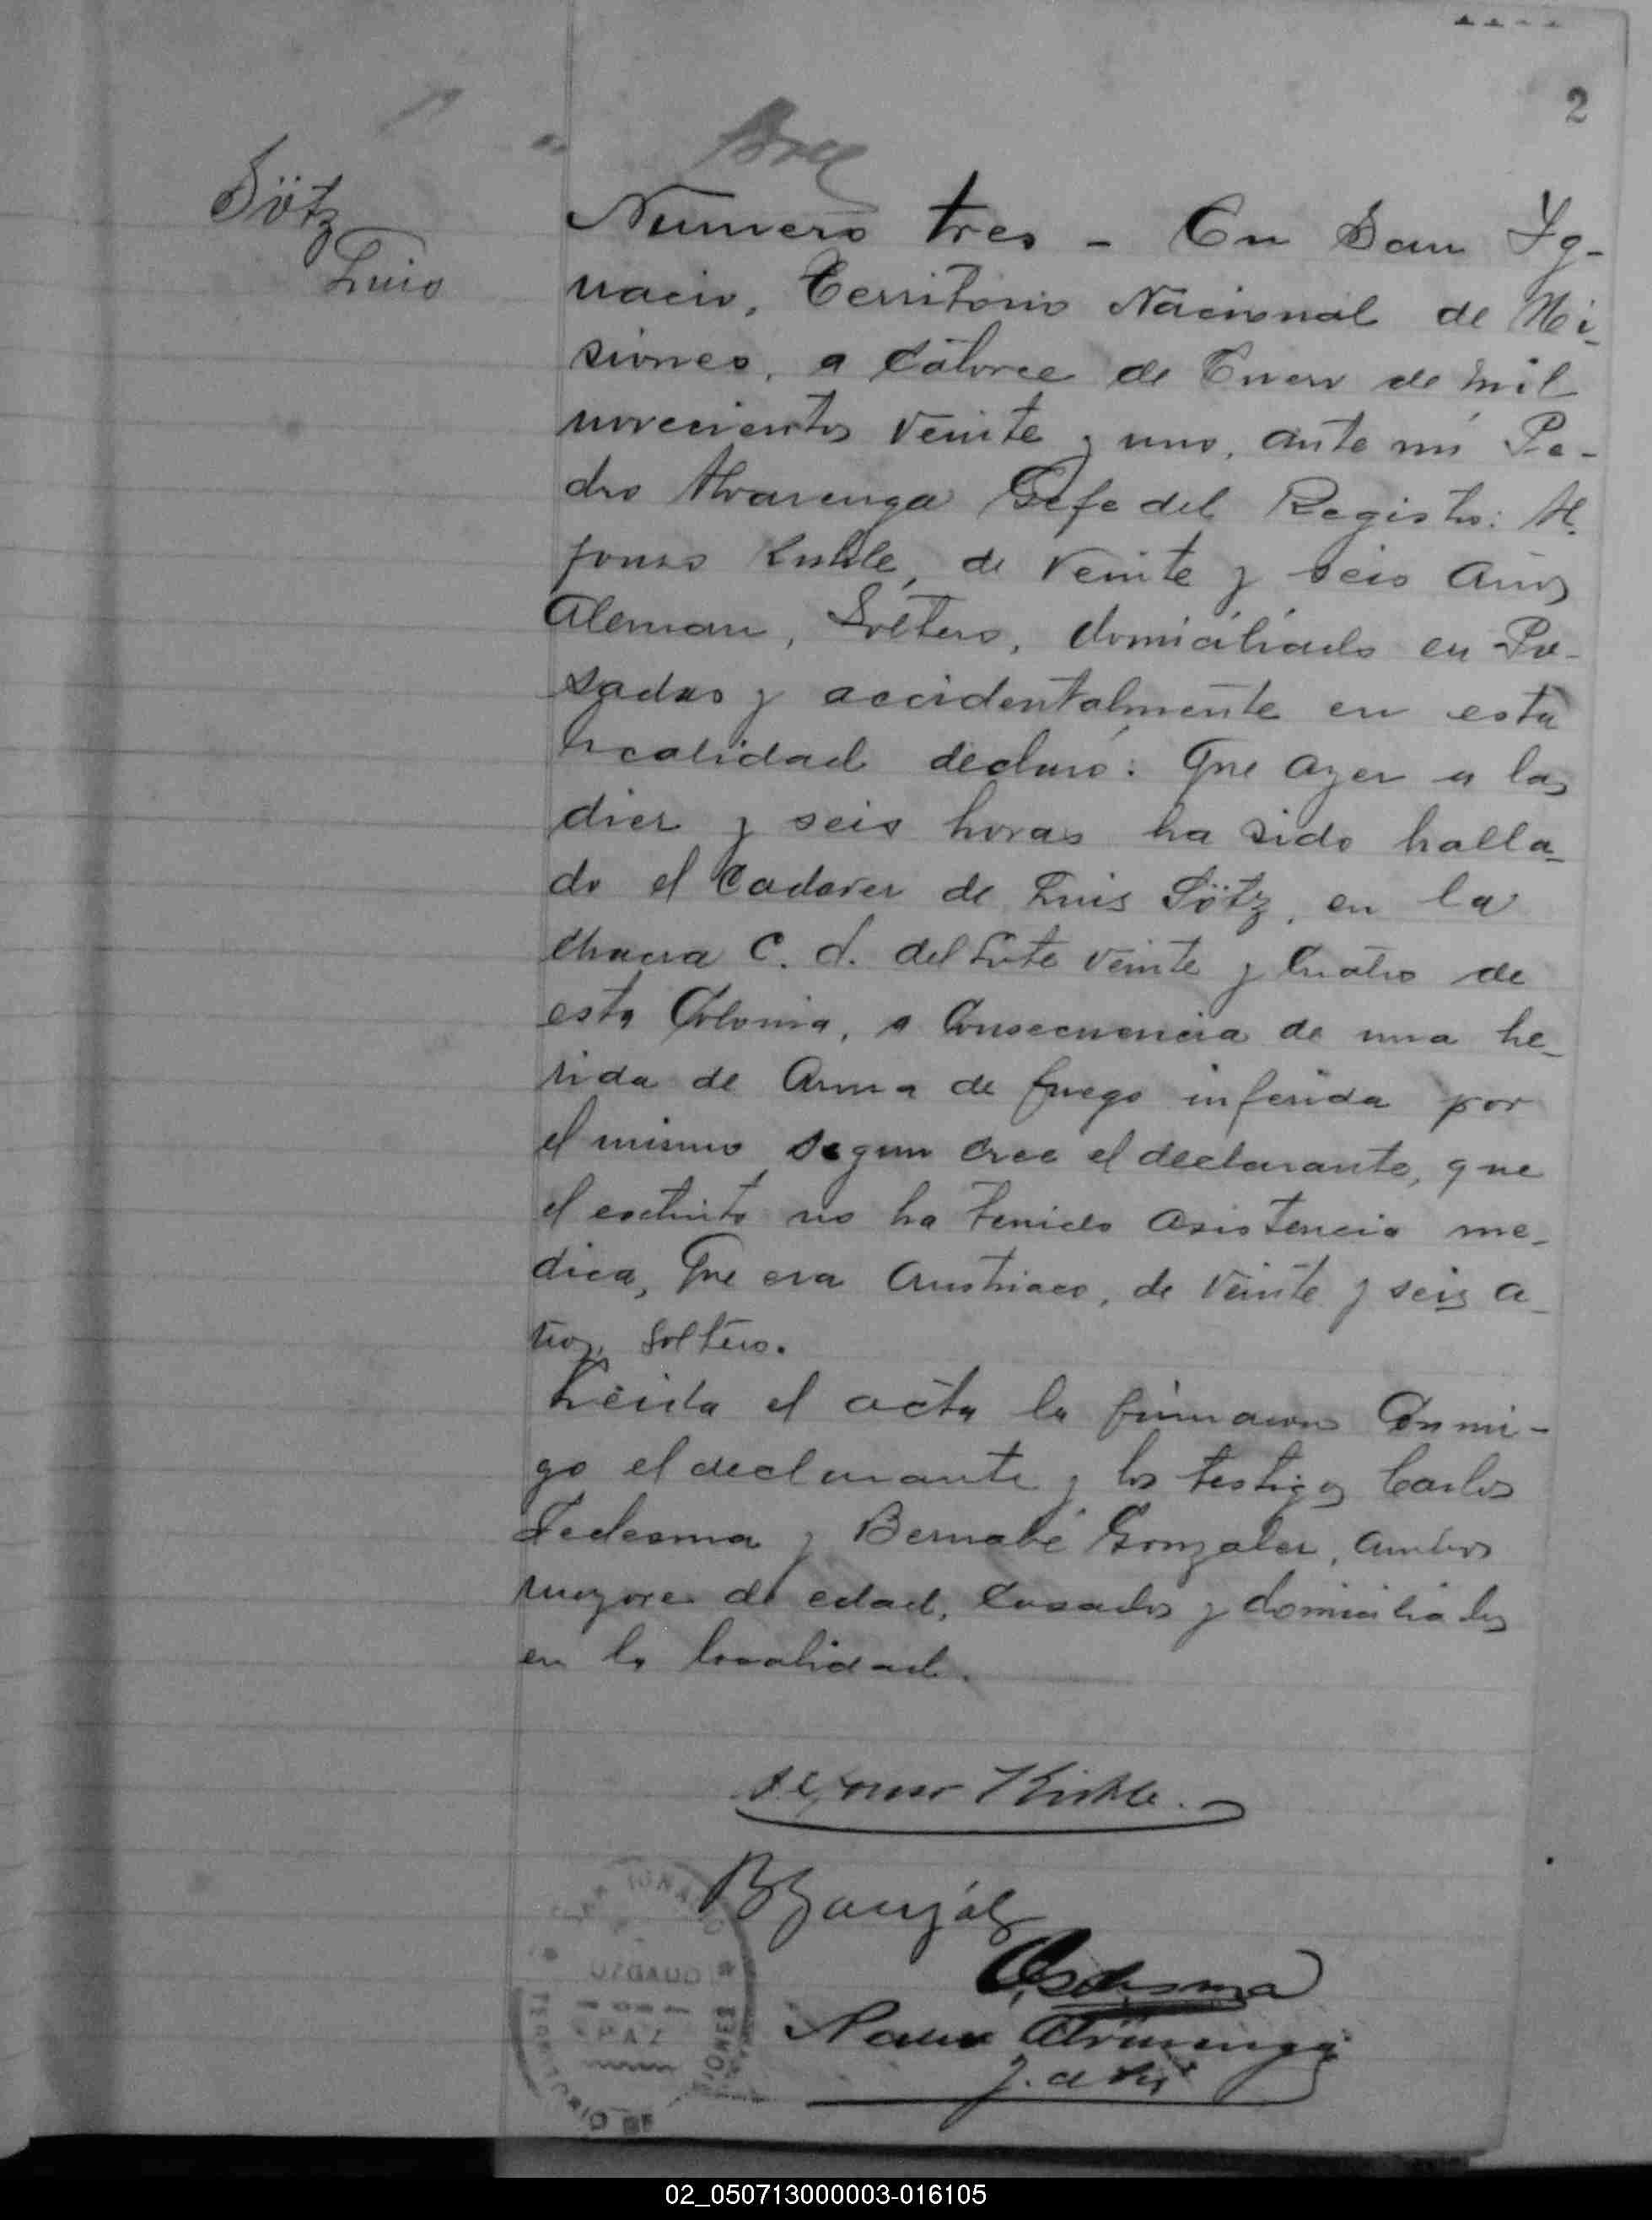 2
Sötz
Luis
Numero tres - En San Yg-
nacio, Territorio Nacional de Mi-
siones, a Catorce de Enero de mil
novecientos veinte y uno, ante mi Pe-
dro Alvarenga Gefe del Registro: Al-
fonso Kuhle, de veinte y seis años
Aleman, Soltero, domiciliado en Po-
sadas y accidentalmente en esta
localidad declaró: Que ayer a las
diez y seis horas ha sido halla-
do el Cadaver de Luis Sötz, en la
chacra C. d. del Lote veinte y Cuatro de
esta Colonia, a Consecuencia de una he-
rida de Arma de fuego inferida por
el mismo segun cree el declarante, que
el extinto no ha tenido asistencia me-
dica, Que era Austriaco, de veinte y seis a-
ños, soltero.
Leida el acta la firmaron Conmi-
go el declarante y los testigos Carlos
Ledesma y Bernabé Gonzalez, ambos
mayores de edad, Casados y domiciliados
en la localidad.
Alfonso Kuhle.
B Gonzalez
C Ledesma
Alvarenga
J. de Paz
SAN IGNACIO
JUZGADO
DE
PAZ
TERRITORIO DE MISIONES
02_050713000003-016105